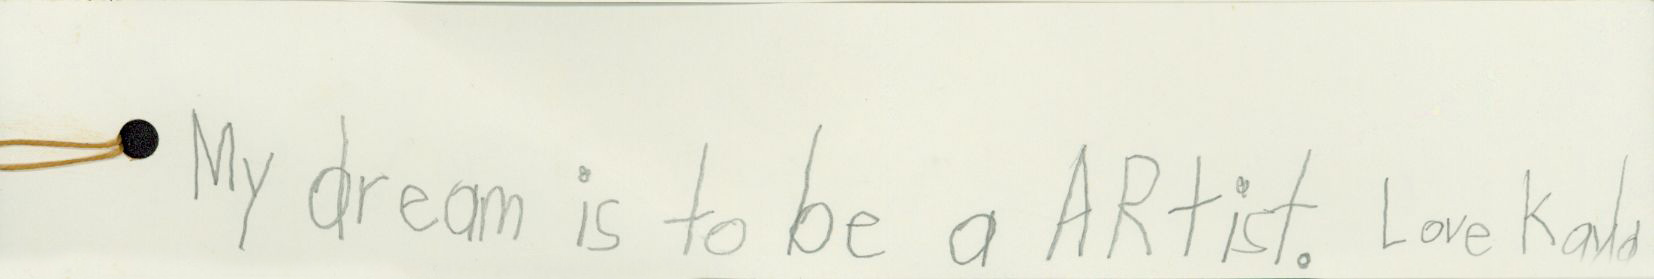 My dream is to be a ARtist. Love Kayla